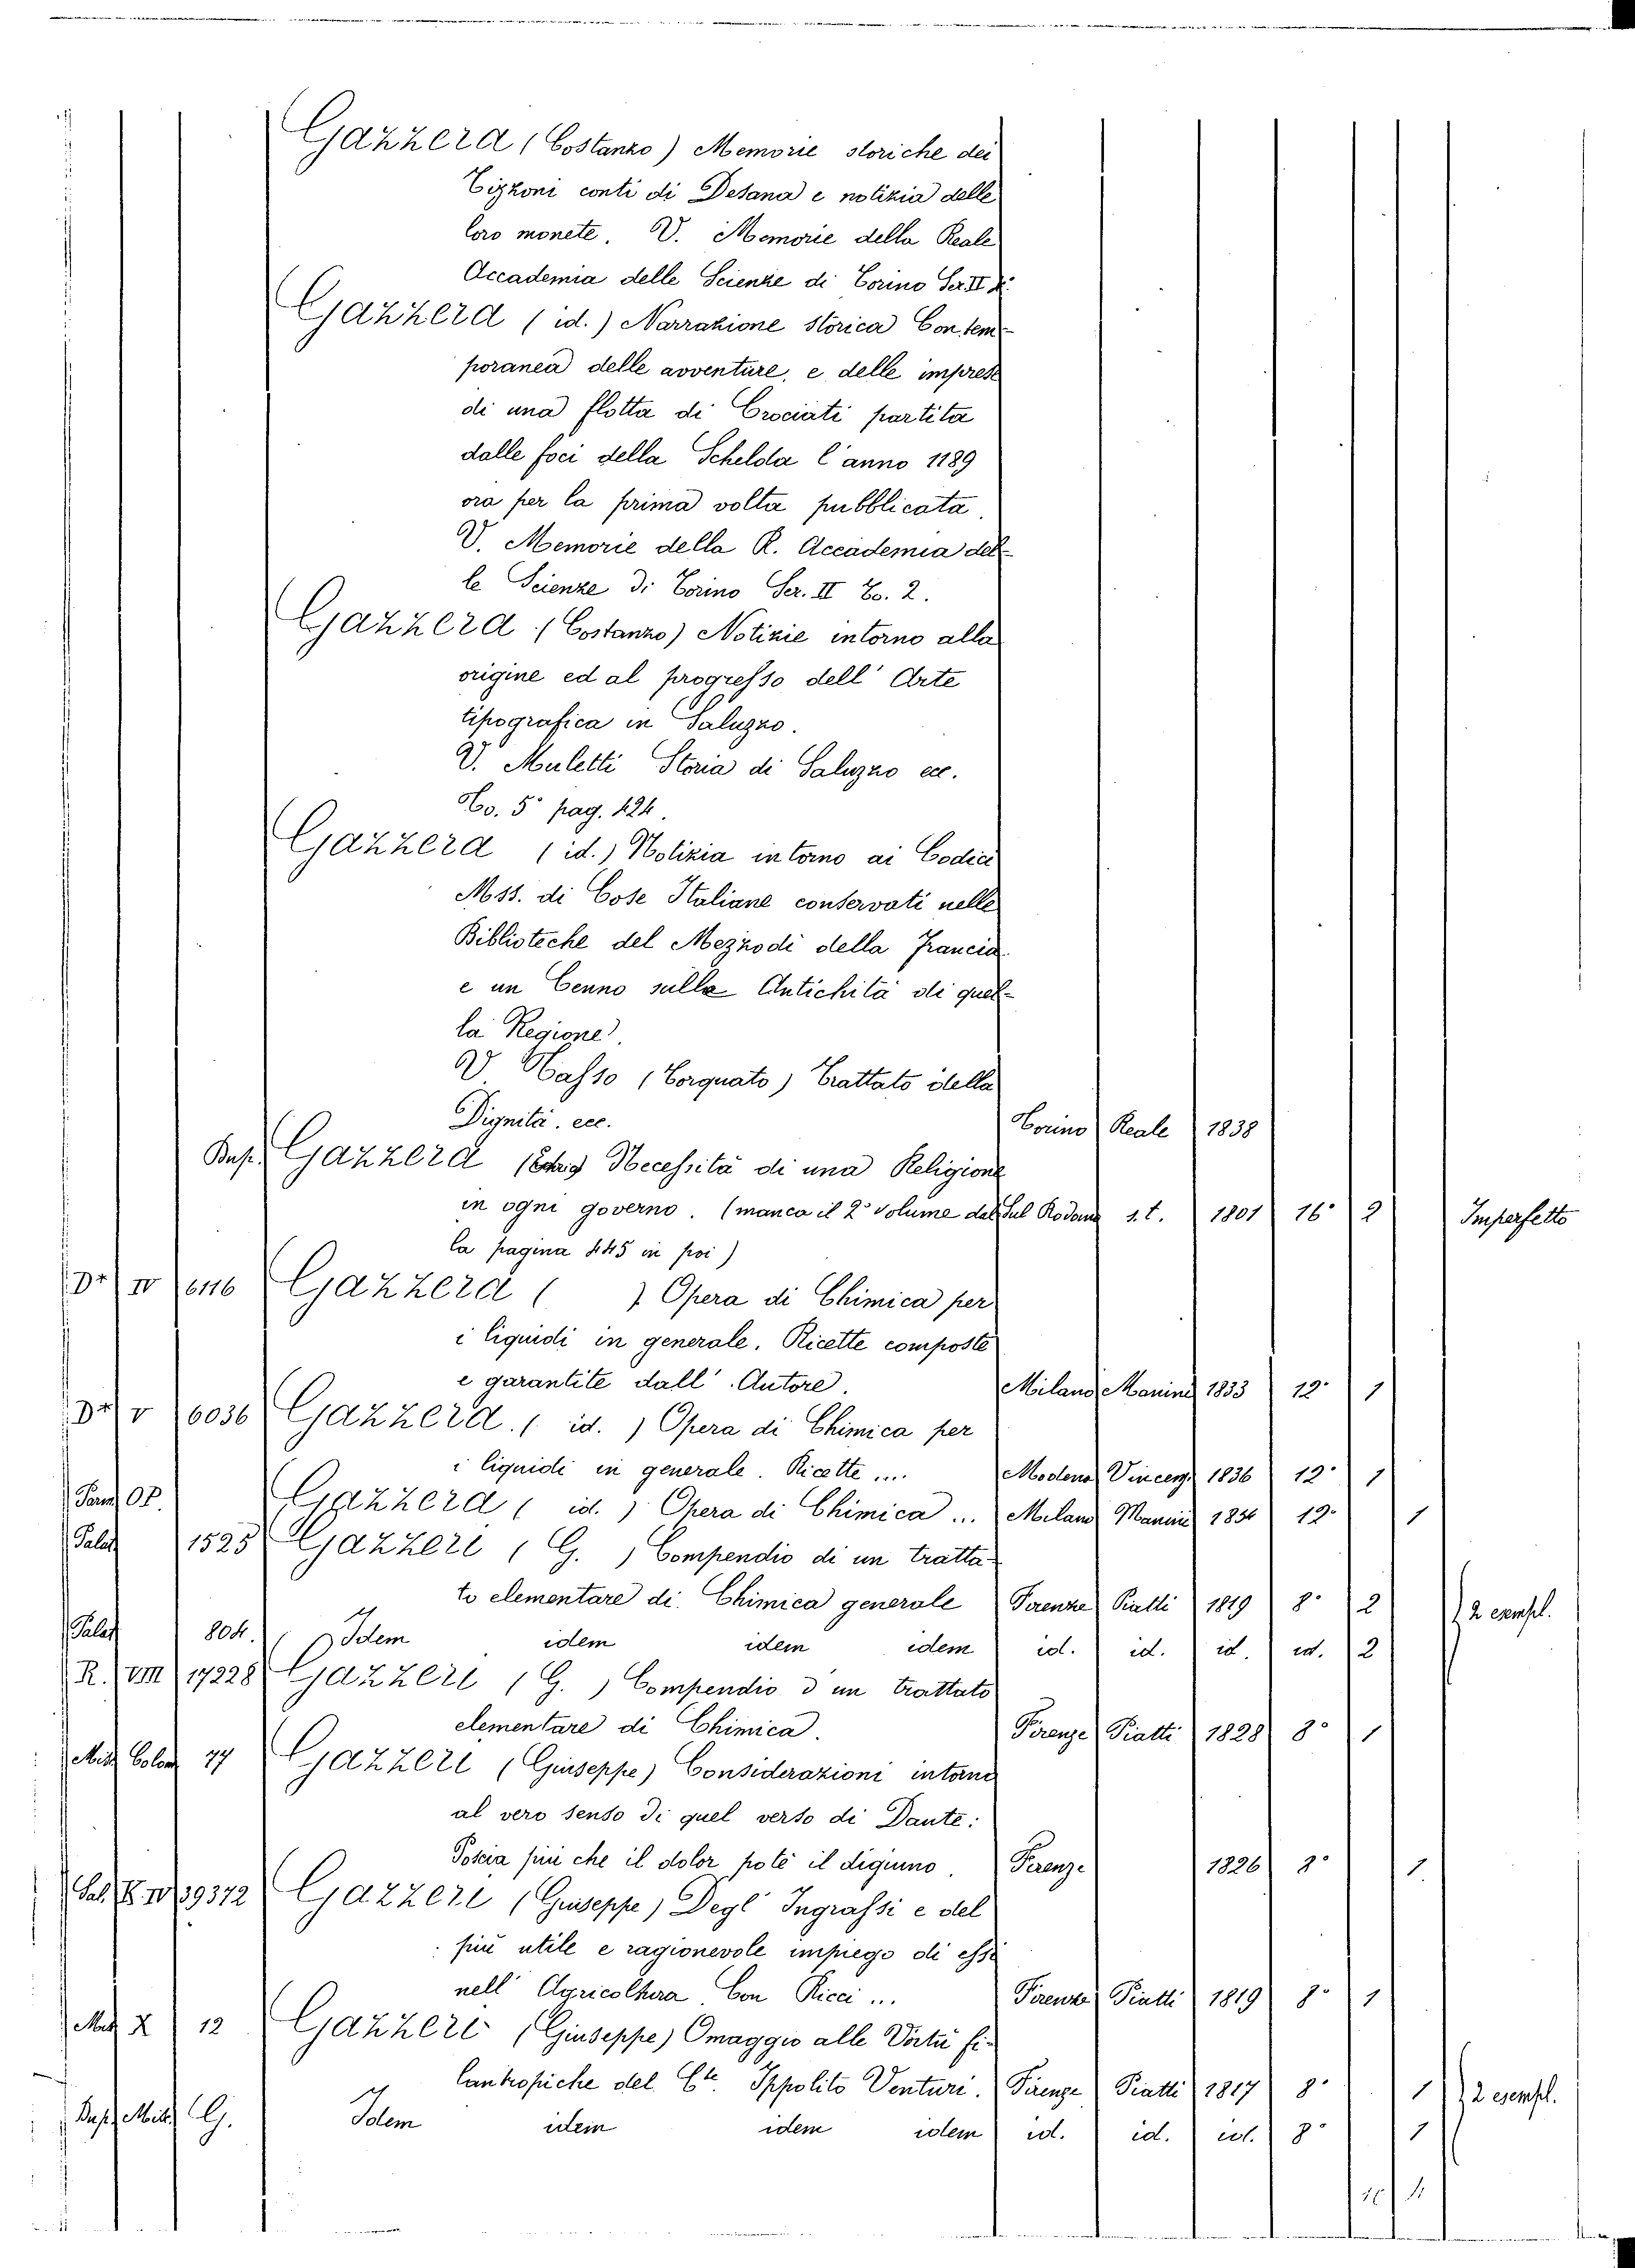 Gazzera (Costanzo) Memorie storiche dei
Tizzoni conti di Desana e notizia delle
loro monete. V. Memorie della Reale
Accademia delle Scienze di Torino Ser. II
Gazzera (id.) Narrazione storica Contem-
poranea delle avventure, e delle imprese
di una flotta di Crociati partita
dalle foci della Schelda l'anno 1189
ora per la prima volta pubblicata.
V. Memorie della R. Accademia del-
le Scienze di Torino Ser. II To. 2.
Gazzera (Costanzo) Notizie intorno alla
origine ed al progresso dell' Arte
tipografica in Saluzzo.
V. Muletti Storia di Saluzzo ec.
To. 5° pag. 424.
Gazzera (id.) Notizia intorno ai Codici
Mss. di Cose Italiane conservati nelle
Biblioteche del Mezzodi della Francia
e un Cenno sulle Antichità di quel-
la Regione.
V. Tasso (Torquato) Trattato della
Dignità. ecc. Torino Reale 1838
Gazzera Necessità di una Religione
in ogni governo. (manca il 2° volume dal Sul Rodano s.t. 1801 16° 2 Imperfetto
la pagina 445 in poi)
Dr IV 6116 Gazzera ( ) Opera di Chimica per
i liquidi in generale. Ricette composte
e garantite dall' Autore. Milano Manini 1833 12° 1
Dr V 6036 Gazzera. (id.) Opera di Chimica per
i liquidi in generale. Ricette .... Modena Vincenzi 1836 12° 1
OP. Gazzera (id.) Opera di Chimica ... Milano Manini 1834 12° 1
Palat 1525 Gazzeri (G.) Compendio di un tratta-
to elementare di Chimica generale Firenze Piatti 1819 8° 2 2 esempl.
Palat 804. Idem idem idem idem id. id. id. id. 2
R. VIII 17228 Gazzeri (G.) Compendio d un trattato
elementare di Chimica. Firenze Piatti 1828 8° 1
Misc. Colom 77 Gazzeri (Giuseppe) Considerazioni intorno
al vero senso di quel verso di Dante:
Poscia più che il dolor potè il digiuno. Firenze 1826 8° 1.
39372 Gazzeri (Giuseppe) Degl' Ingrassi e del
più utile e ragionevole impiego di essi
nell' Agricoltura Con Ricci ... Firenze Piatti 1819 8° 1
X 12 Gazzeri (Giuseppe) Omaggio alle Virtù fi-
lantropiche del Cte. Ippolito Venturi. Firenze Piatti 1817 8° 1 2 esempl.
G. Idem idem idem idem id. id. id. 8° 1